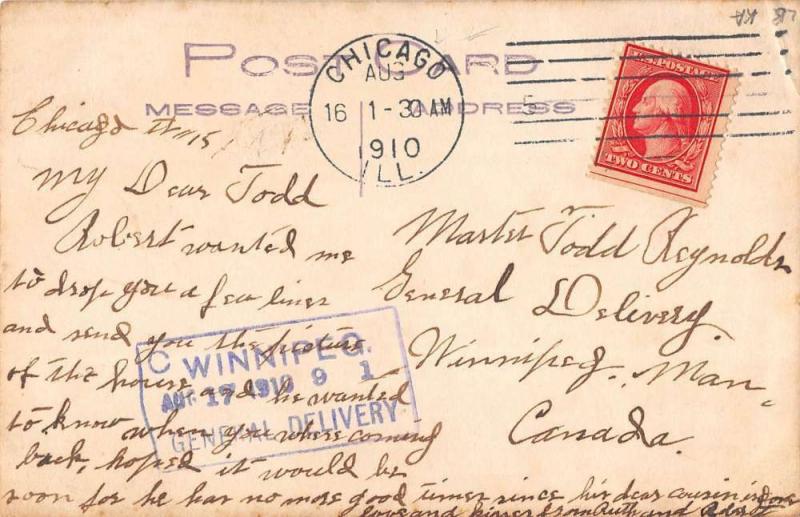 POST CARD
MESSAGE ADDRESS
CHICAGO
AUG
16 1-30 AM
1910
ILL.
5
U.S. POSTAGE
TWO CENTS
Chicago 15
My Dear Todd
Robert wanted me
to drop you a few lines
and send you the picture
of the house and he wanted
to know when you where coming
back, hoped it would be
soon for he has no more good times since his dear cousin is
love and kisses from Ruth and
Master Todd Reynolds
General Delivery.
Winnipeg. Man
Canada.
C WINNIPEG.
AUG 17 1910 9 1
GENERAL DELIVERY